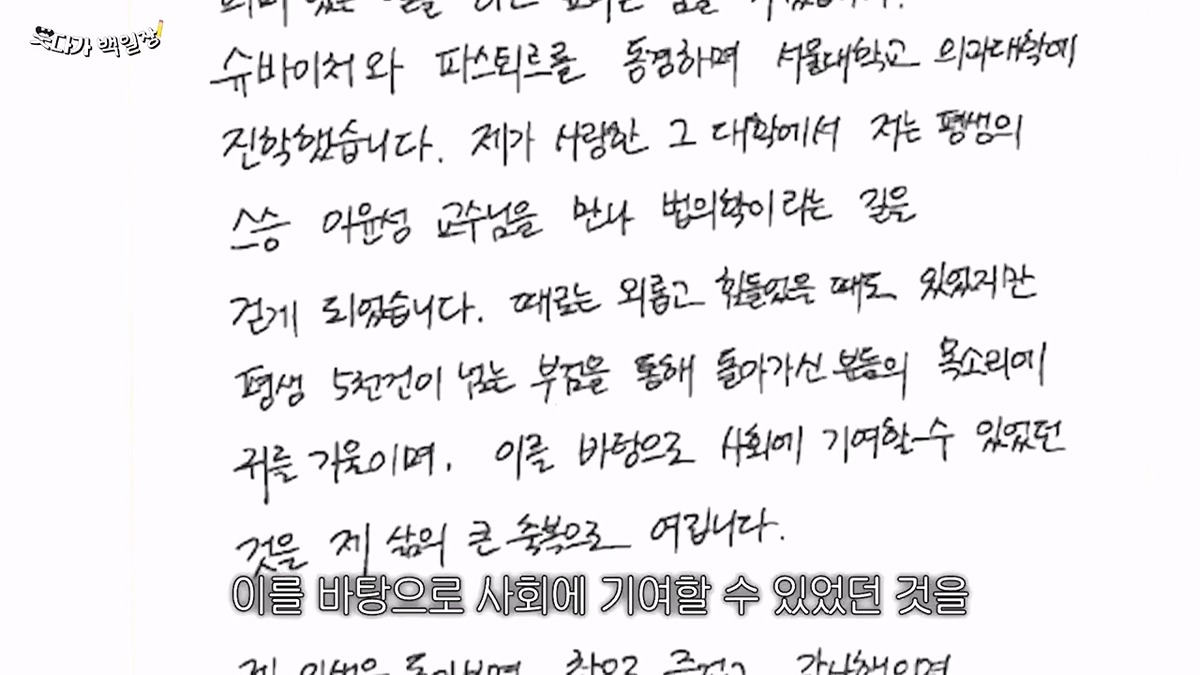 웃다가 백일장
슈바이처와 파스퇴르를 동경하며 서울대학교 의과대학에
진학했습니다. 제가 사랑한 그 대학에서 저는 평생의
스승 이윤성 교수님을 만나 법의학이라는 길을
걷게 되었습니다. 때로는 외롭고 힘들었을 때도 있었지만
평생 5천건이 넘는 부검을 통해 돌아가신 분들의 목소리에
귀를 기울이며, 이를 바탕으로 사회에 기여할 수 있었던
것을 제 삶의 큰 축복으로 여깁니다.
이를 바탕으로 사회에 기여할 수 있었던 것을